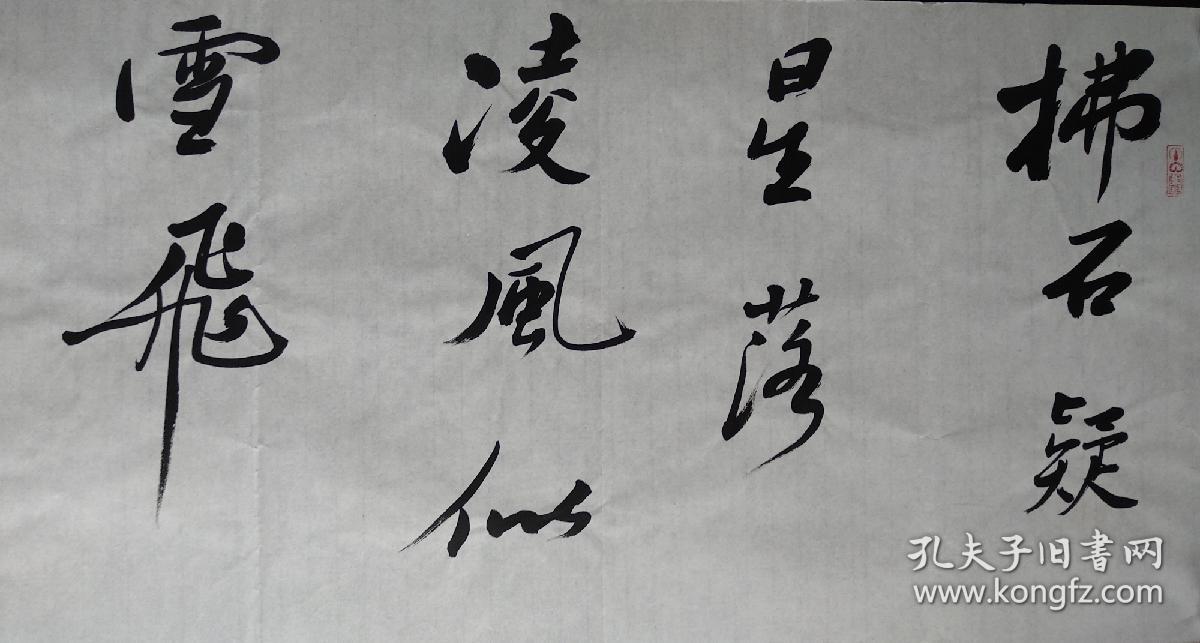 拂石疑
星落
凌風似
雪飛
孔夫子旧書网
www.kongfz.com